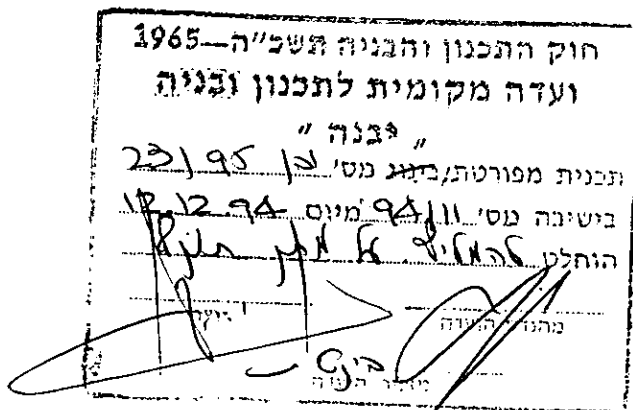 חוק התכנון והבניה תשכ"ה—1965
ועדה מקומית לתכנון ובניה
" יבנה "
תכנית מפורטת/בינוי מס' בן 95 / 23
בישיבה מס' 94/11 מיום 12.94
הוחלט להמליץ על מתן תוקף
מהנדס הועדה